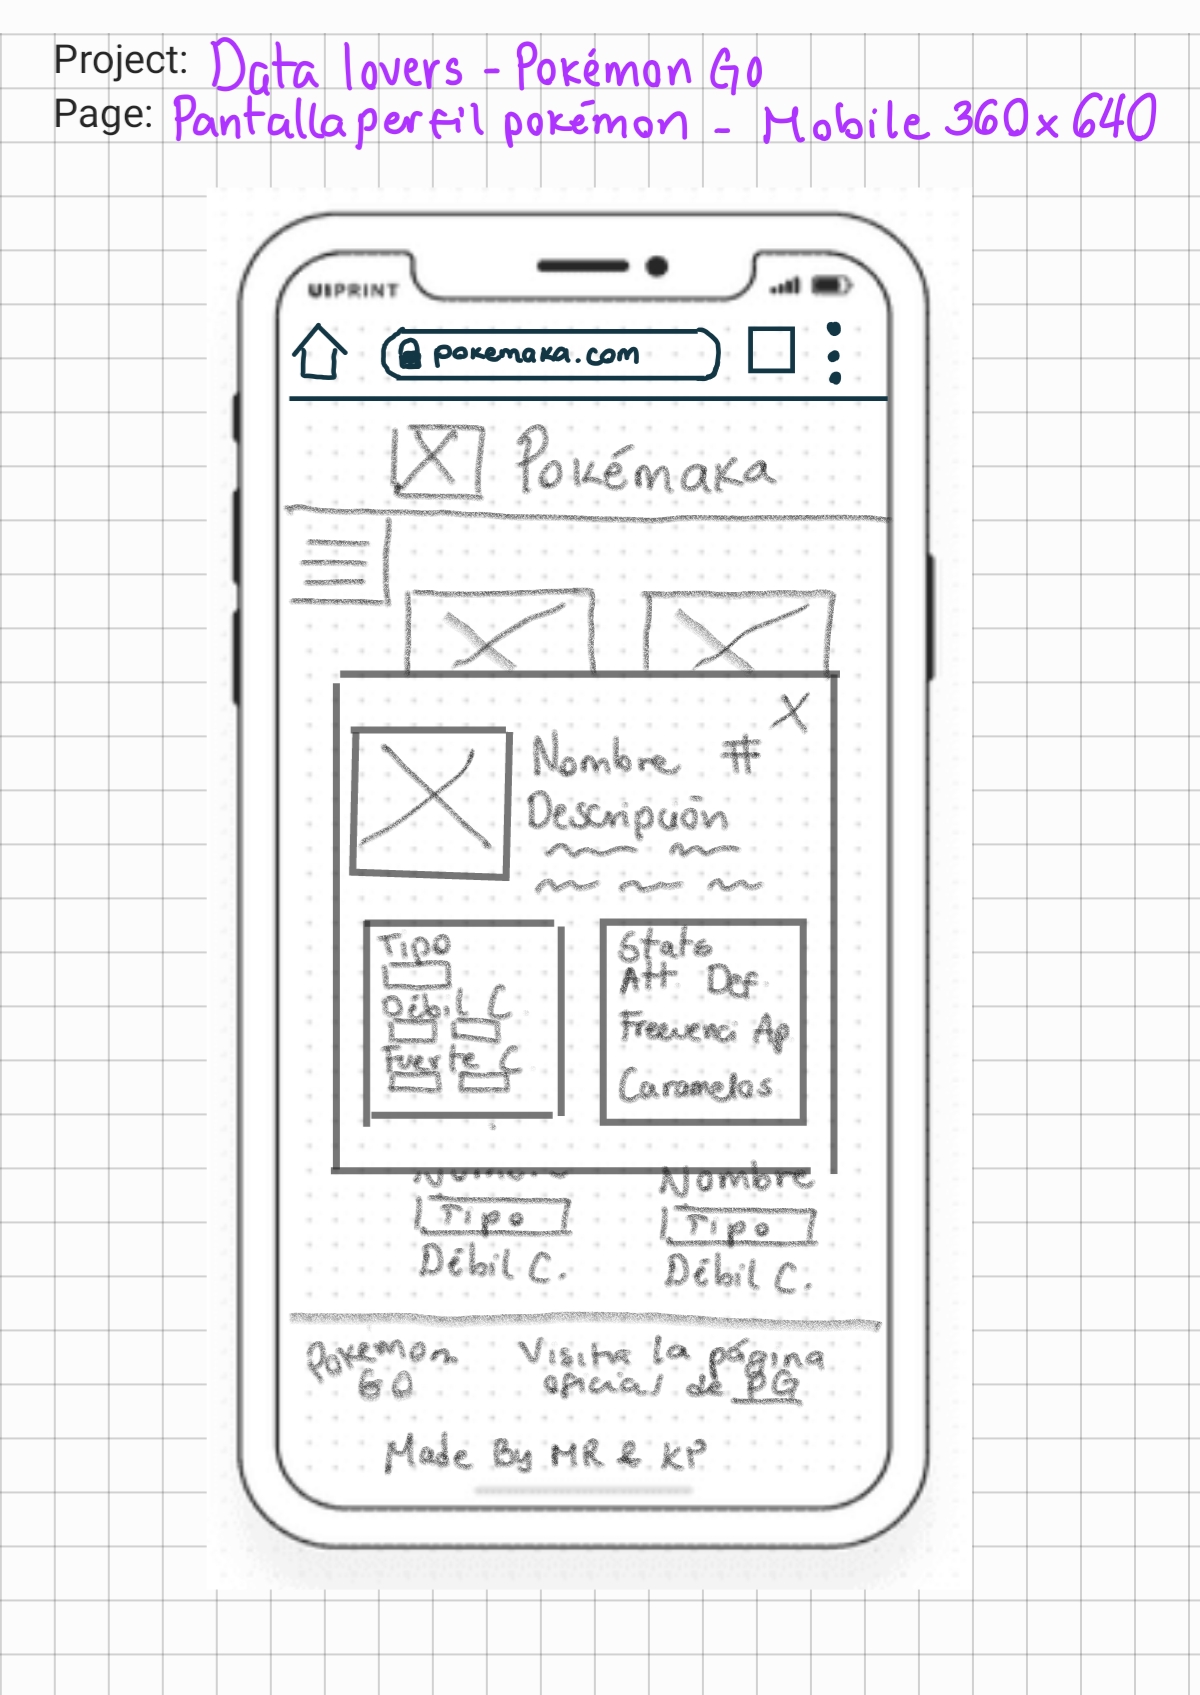 Project: Data lovers - Pokémon Go
Page: Pantalla perfil pokémon - Mobile 360x640
UIPRINT
pokemaka.com
Pokémaka
X
Nombre #
Descripción
Tipo
Débil C
Fuerte C
Stats
Att Def
Frecuenci Ap
Caramelos
Nombre
Tipo
Débil C.
Nombre
Tipo
Débil C.
Pokemon
GO
Visita la página
oficial de PG
Made By MR & KP